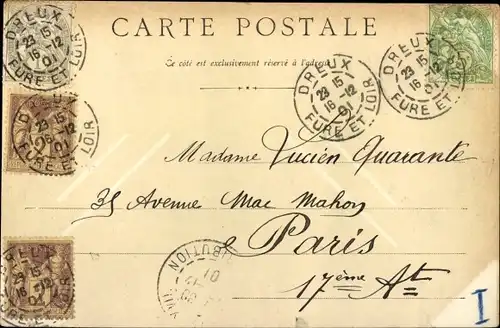 CARTE POSTALE
Ce côté est exclusivement réservé à l'adresse
DREUX
23 15
16 -12
01
EURE ET LOIR
DREUX
23 15
16 -12
01
EURE ET LOIR
DREUX
23 15
16 -12
01
EURE ET LOIR
DREUX
23 15
16 -12
01
EURE ET LOIR
Madame Lucien Quarante
35 Avenue Mac Mahon
Paris
17ème At
23 15
16 -12
01
EURE ET LOIR
DISTRIBUTION
01
I